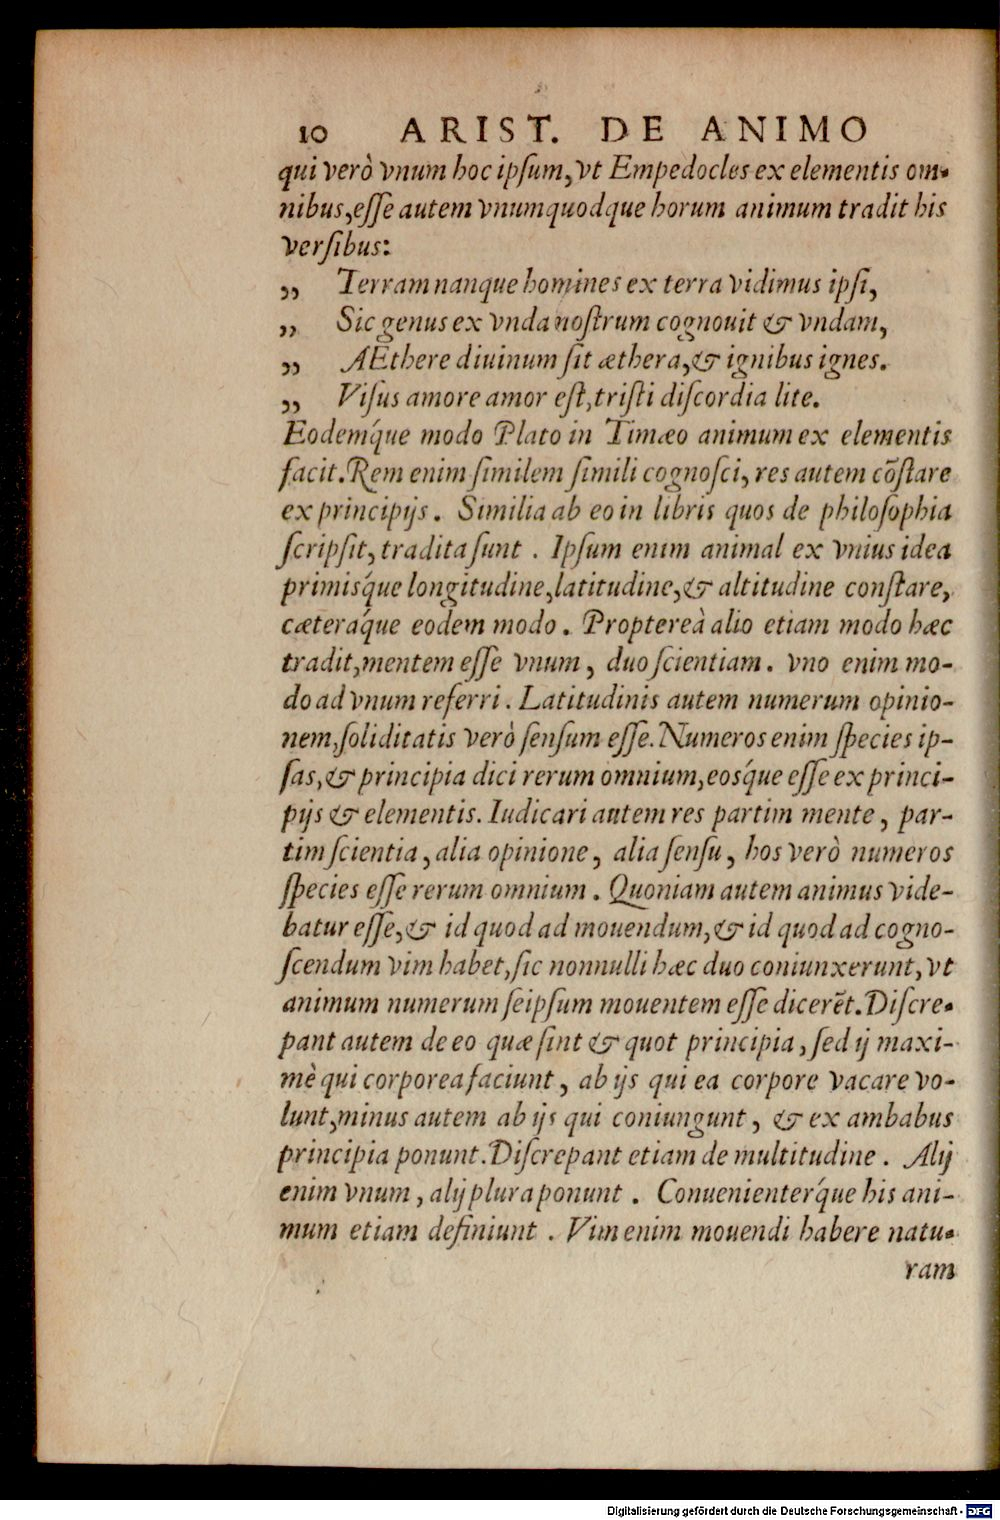 10 ARIST. DE ANIMO
qui verò vnum hoc ipſum, vt Empedocles ex elementis om-
nibus, eſſe autem vnumquodque horum animum tradit his
verſibus:
„ Terram nanque homines ex terra vidimus ipſi,
„ Sic genus ex vnda noſtrum cognouit & vndam,
„ AEthere diuinum ſit æthera, & ignibus ignes.
„ Viſus amore amor eſt, triſti diſcordia lite.
Eodemq́ue modo Plato in Timæo animum ex elementis
facit. Rem enim ſimilem ſimili cognoſci, res autem cõſtare
ex principijs. Similia ab eo in libris quos de philoſophia
ſcripſit, tradita ſunt. Ipſum enim animal ex vnius idea
primisq́ue longitudine, latitudine, & altitudine conſtare,
cæteraq́ue eodem modo. Proptereà alio etiam modo hæc
tradit, mentem eſſe vnum, duo ſcientiam. vno enim mo-
do ad vnum referri. Latitudinis autem numerum opinio-
nem, ſoliditatis verò ſenſum eſſe. Numeros enim ſpecies ip-
ſas, & principia dici rerum omnium, eosq́ue eſſe ex princi-
pijs & elementis. Iudicari autem res partim mente, par-
tim ſcientia, alia opinione, alia ſenſu, hos verò numeros
ſpecies eſſe rerum omnium. Quoniam autem animus vide-
batur eſſe, & id quod ad mouendum, & id quod ad cogno-
ſcendum vim habet, ſic nonnulli hæc duo coniunxerunt, vt
animum numerum ſeipſum mouentem eſſe dicerẽt. Diſcre-
pant autem de eo quæ ſint & quot principia, ſed ij maxi-
mè qui corporea faciunt, ab ijs qui ea corpore vacare vo-
lunt, minus autem ab ijs qui coniungunt, & ex ambabus
principia ponunt. Diſcrepant etiam de multitudine. Alij
enim vnum, alij plura ponunt. Conuenienterq́ue his ani-
mum etiam definiunt. Vim enim mouendi habere natu-
ram
Digitalisierung gefördert durch die Deutsche Forschungsgemeinschaft - DFG